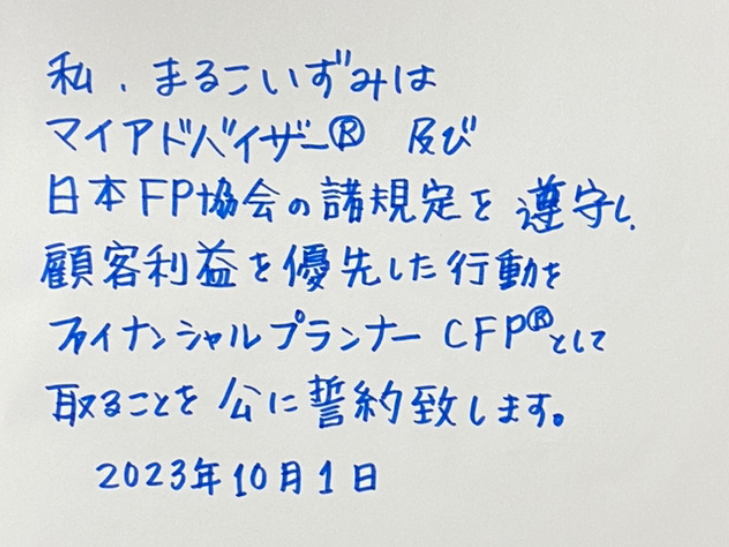 私、まるこいずみは
マイアドバイザー® 及び
日本FP協会の諸規定を遵守し、
顧客利益を優先した行動を
ファイナンシャルプランナー CFP®として
取ることを公に誓約致します。
2023年10月1日